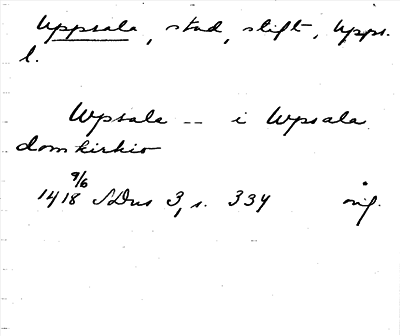 Uppsala, stad, stift, Upps.
l.
Wpsala -- i Wpsala
domkirkio
9/6
1418 SDns 3, s. 334 orig.